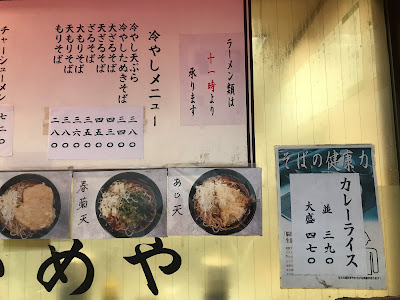 ラーメン類は
十一時より
承ります
冷やしメニュー
冷やし天ぷらそば
冷やしたぬきそば
大ざるそば
天ざるそば
ざるそば
大もりそば
天もりそば
もりそば
チャーシューメン
七二〇
そばの健康力
カレーライス
並 三九〇
大盛 四七〇
あじ天
春菊天
めや